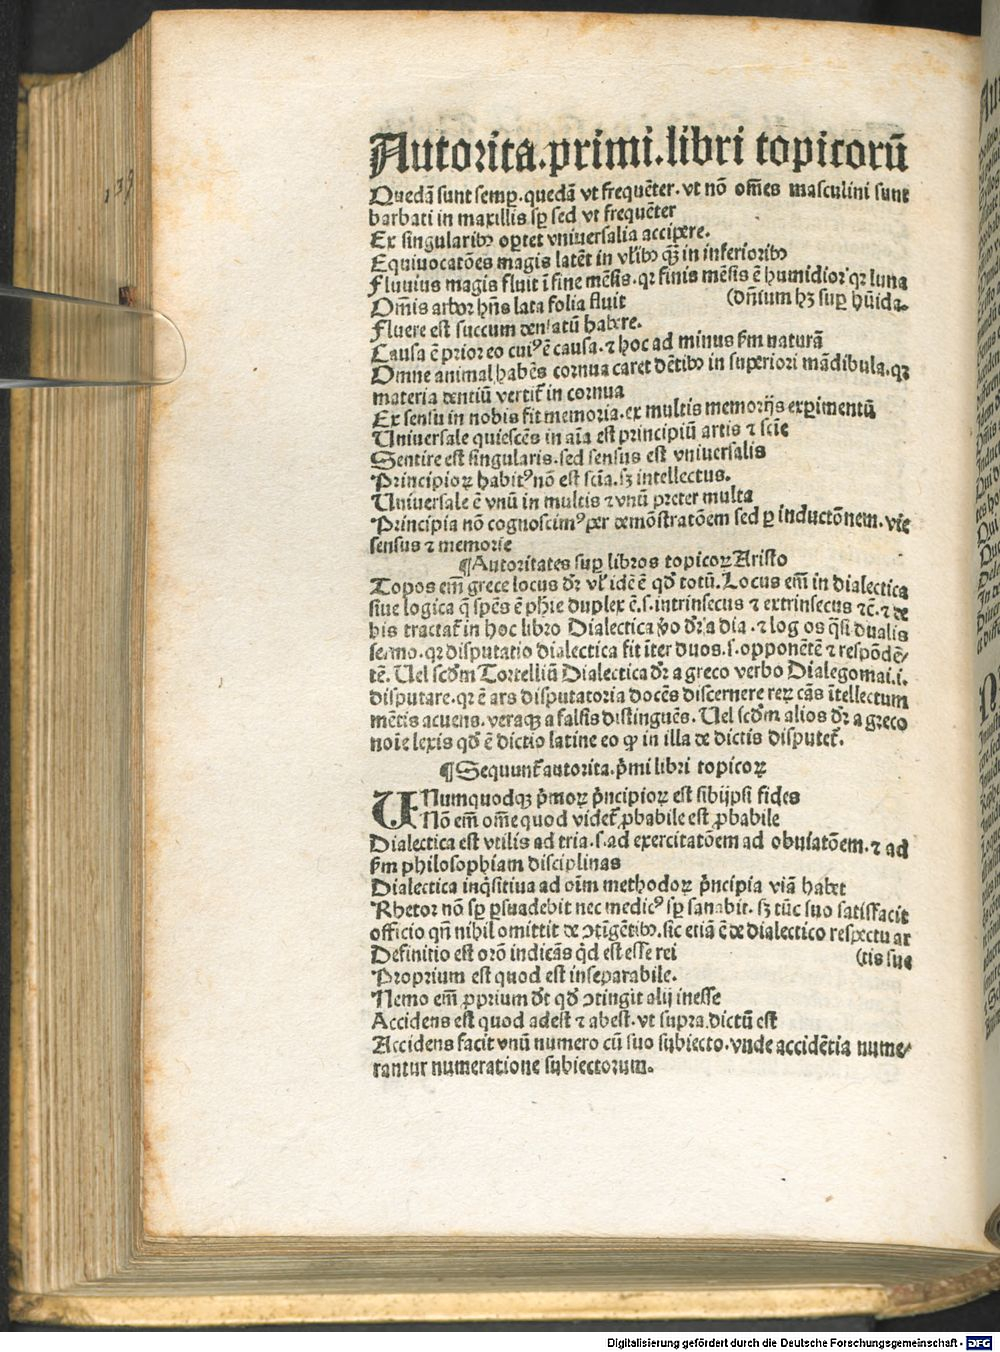 139
Autorita.primi.libri topicorū
Quedā sunt semꝑ.quedā vt frequēter.vt nō om̄es masculini sunt
barbati in maxillis sꝑ sed vt frequēter
Ex singularibꝰ oꝑtet vniuersalia accipere.
Equiuocatōes magis latēt in vl̄ibꝰ qꝫ̄ in inferioribꝰ
Fluuius magis fluit ī fine mēsis.qꝛ finis mēsis ē humidior qꝛ luna
Om̄is arbor hn̄s lata folia fluit (dn̄ium hꝫ suꝑ hūida.
Fluere est succum densatū habere.
Causa ē prior eo cuiꝰ ē causa.⁊ hoc ad minus ẜm naturā
Omne animal habēs cornua caret dētibꝰ in superiori mādibula.qꝛ
materia dentiū vertit̄ in cornua
Ex sensu in nobis fit memoria.ex multis memorijs exꝑimentū
Uniuersale quiescēs in aīa est principiū artis ⁊ scīe
Sentire est singularis.sed sensus est vniuersalis
Principioꝝ habitꝰ nō est scīa.sꝫ intellectus.
Uniuersale ē vnū in multis ⁊ vnū preter multa
Principia nō cognoscimꝰ per demōstratōem sed ꝑ inductōnem.vie
sensus ⁊ memorie
¶Autoritates suꝑ libros topicoꝝ Aristo
Topos em̄ grece locus dr̄ vl̓ idē ē qd̓ totū.Locus em̄ in dialectica
siue logica q̄ spēs ē ph̄ie duplex ē.s.intrinsecus ⁊ extrinsecus ⁊c̄.⁊ de
his tractat̄ in hoc libro Dialectica ꝟo dr̄ a dia.⁊ log os q̄si dualis
sermo.qꝛ disputatio dialectica fit īter duos.s.opponētē ⁊ respōdē/
tē.Uel scd̓m Tortelliū Dialectica dr̄ a greco verbo Dialegomai.i.
disputare.qꝛ ē ars disputatoria docēs discernere reꝝ cās ītellectum
mētis acuens.veraqꝫ a falsis distinguēs.Uel scd̓m alios dr̄ a greco
noīe lexis qd̓ ē dictio latine eo ꝙ in illa de dictis disputet̄.
¶Sequunt̄ autorita.p̄mi libri topicoꝝ
UNumquodqꝫ p̄moꝝ p̄ncipioꝝ est sibijpsi fides
Nō em̄ om̄e quod videt̄ ꝓbabile est ꝓbabile
Dialectica est vtilis ad tria.s.ad exercitatōem ad obuiatōem.⁊ ad
ẜm philosophiam disciplinas
Dialectica inq̄sitiua ad oīm methodoꝝ p̄ncipia viā habet
Rhetor nō sꝑ ꝑsuadebit nec medicꝰ sꝑ sanabit.sꝫ tūc suo satisfacit
officio qn̄ nihil omittit de ↄtīgētibꝰ.sic etiā ē de dialectico respectu ar
Definitio est orō indicās qd̓ est esse rei (tis sue
Proprium est quod est inseparabile.
Nemo em̄ ꝓprium dt̄ qd̓ ↄtingit alij inesse
Accidens est quod adest ⁊ abest.vt supra.dictū est
Accidens facit vnū numero cū suo subiecto.vnde accidētia nume/
rantur numeratione subiectorum.
Digitalisierung gefördert durch die Deutsche Forschungsgemeinschaft - DFG